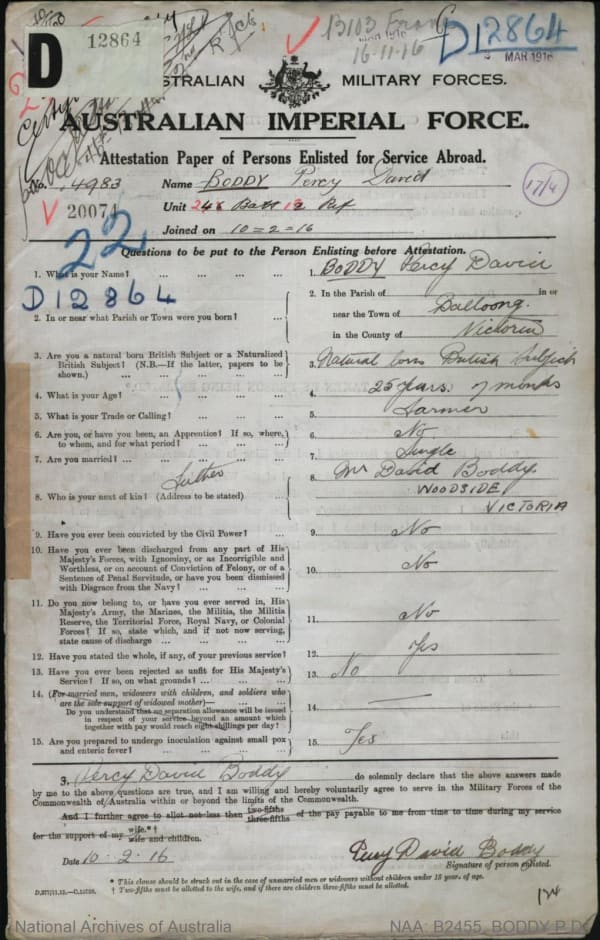 D
12864
B103
16-11-16
D12864
MAR 1916
AUSTRALIAN MILITARY FORCES.
AUSTRALIAN IMPERIAL FORCE.
Attestation Paper of Persons Enlisted for Service Abroad.
No. 4983 Name BODDY Percy David
20074 Unit
22
Joined on 10=2=16
17/4
Questions to be put to the Person Enlisting before Attestation.
1. What is your Name? ... ... ... ... 1. BODDY Percy David
D12864
2. In or near what Parish or Town were you born? ... 2. In the Parish of in or
near the Town of Balloong
in the County of Victoria
3. Are you a natural born British Subject or a Naturalized British Subject? (N.B.—If the latter, papers to be shown.) ... ... 3. Natural born British Subject
4. What is your Age? ... ... ... 4. 25 years 7 months
5. What is your Trade or Calling? ... ... ... 5. Farmer
6. Are you, or have you been, an Apprentice? If so, where, to whom, and for what period? ... ... ... 6. No
7. Are you married? ... ... ... ... ... 7. Single
Father
8. Who is your next of kin? (Address to be stated) ... 8. Mr David Boddy
WOODSIDE
VICTORIA
9. Have you ever been convicted by the Civil Power? ... 9. No
10. Have you ever been discharged from any part of His Majesty's Forces, with Ignominy, or as Incorrigible and Worthless, or on account of Conviction of Felony, or of a Sentence of Penal Servitude, or have you been dismissed with Disgrace from the Navy? ... ... ... 10. No
11. Do you now belong to, or have you ever served in, His Majesty's Army, the Marines, the Militia, the Militia Reserve, the Territorial Force, Royal Navy, or Colonial Forces? If so, state which, and if not now serving, state cause of discharge ... ... ... ... 11. No
12. Have you stated the whole, if any, of your previous service? 12. Yes
13. Have you ever been rejected as unfit for His Majesty's Service? If so, on what grounds? ... ... ... 13. No
14. (For married men, widowers with children, and soldiers who are the sole support of widowed mother)—
Do you understand that no separation allowance will be issued in respect of your service beyond an amount which together with pay would reach eight shillings per day? 14. —
15. Are you prepared to undergo inoculation against small pox and enteric fever? ... ... ... ... 15. Yes
3. Percy David Boddy do solemnly declare that the above answers made
by me to the above questions are true, and I am willing and hereby voluntarily agree to serve in the Military Forces of the
Commonwealth of Australia within or beyond the limits of the Commonwealth.
And I further agree to allot not less than two-fifths three-fifths of the pay payable to me from time to time during my service
for the support of my wife.*† wife and children.
Date 10.2.16 Percy David Boddy
Signature of person enlisted.
* This clause should be struck out in the case of unmarried men or widowers without children under 18 years of age.
† Two-fifths must be allotted to the wife, and if there are children three-fifths must be allotted.
National Archives of Australia
NAA: B2455, BODDY P D